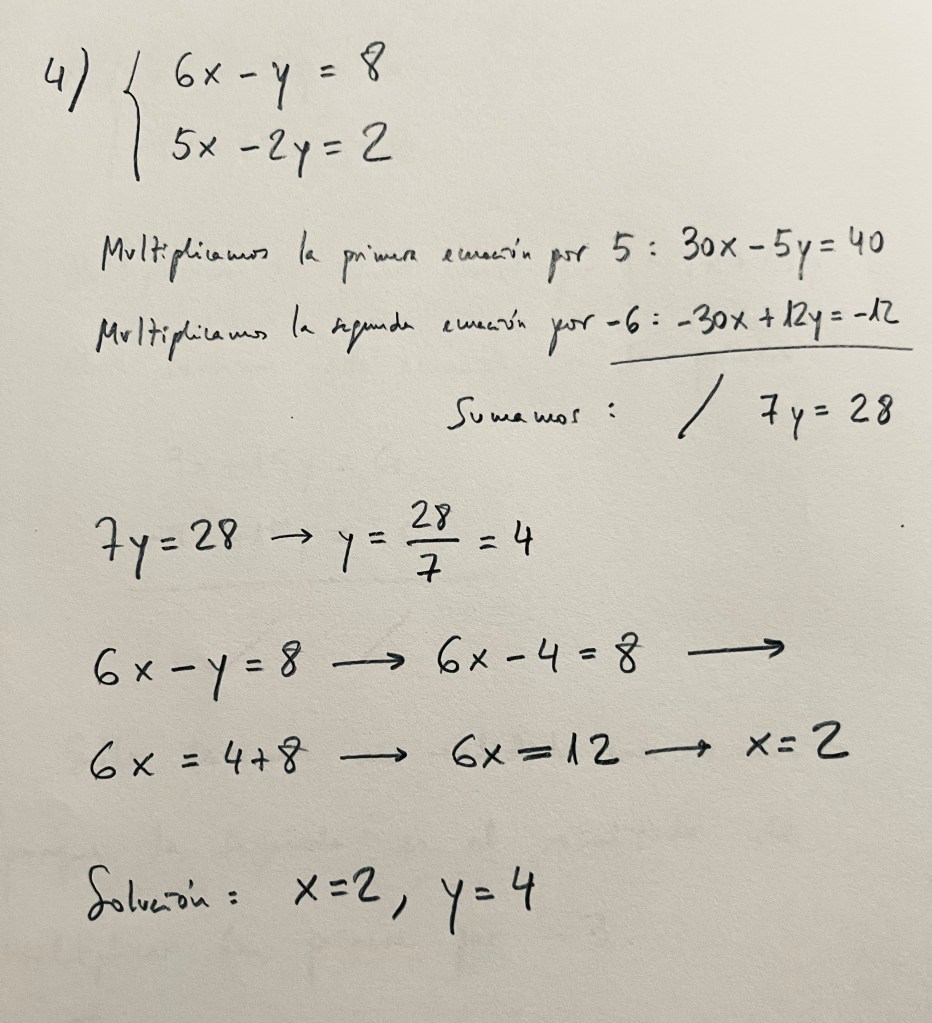 4) { 6x - y = 8
5x - 2y = 2
Multiplicamos la primera ecuación por 5 : 30x - 5y = 40
Multiplicamos la segunda ecuación por -6 : -30x + 12y = -12
Sumamos : / 7y = 28
7y = 28 → y = 28/7 = 4
6x - y = 8 → 6x - 4 = 8 →
6x = 4+8 → 6x = 12 → x = 2
Solución : x = 2, y = 4